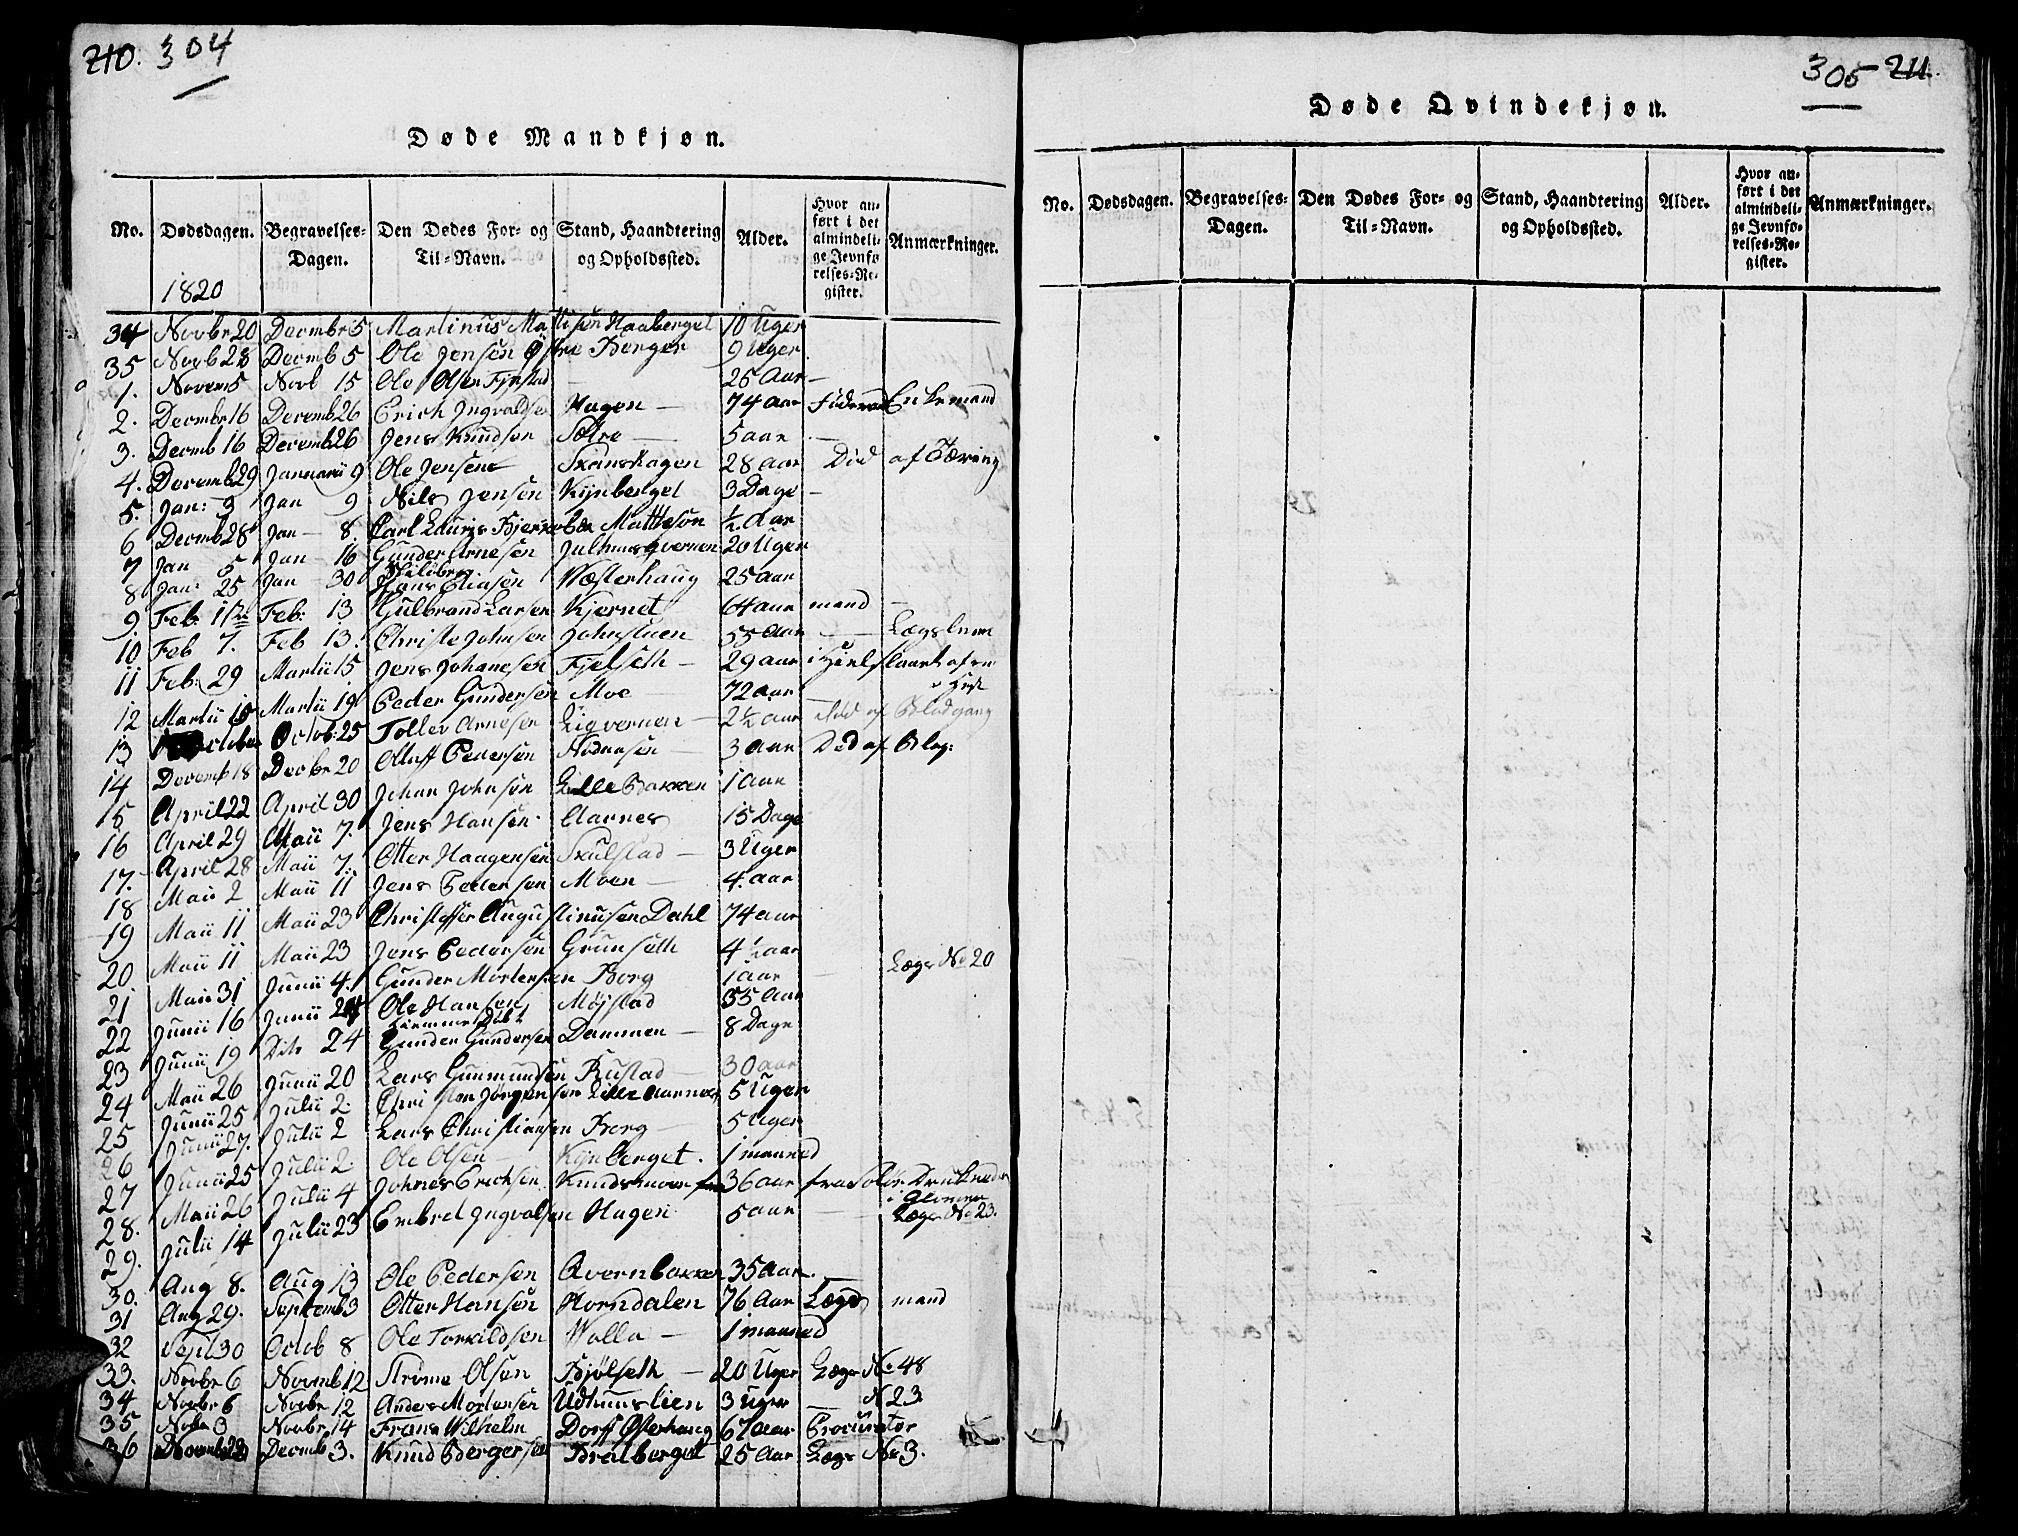 210. 304
Døde Mandkjøn.
No. Dødsdagen. Begravelses-Dagen. Den Dødes For- og Til-Navn. Stand, Haandtering og Opholdssted. Alder. Hvor anført i det almindelige Jevnførelses-Register. Anmærkninger.
1820
34 Novbr 20 Decmbr 5 Martinus Haaberget 10 Uger
35 Novb 28 Decmb 5 Ole Jensen Østre Berger 9 Uger
1. Novem 5 Novb 15 Ole Olsen 26 Aar
2. Decmbr 16 Decemb 26 Erich Ingvaldsen Hagen 74 aar Enkemand
3. Decmb 16 Decemb 26 Jens Knudsøn Sætre 5 aar
4. Decemb 29 Januarii 9 Ole Jensen 28 aar Død af Tæring
5. Jan: 3 Jan 9 Nils Jensen Kynberget 3 Dage
6 Decmb 28 Jan 8. Carl Lauris Mattesøn 1/2 Aar
7 Jan 5 Jan 16 Gunder Arnesen 20 Uger
8 Jan: 25 Jan 30 Hans Eliasen Wæsterhaug 25 aar
9 Feb. 11 Feb: 13 Gulbrand Larsen Kjernet 64 aar mand
10 Feb 7. Feb 13. Christe Johnsen Johnstuen 55 Aar Lægslem
11 Feb: 29 Martii 15 Jens Johanesen Fjelseth 29 aar
12 Martii 15 Martii 19 Peder Gundersen Moe 72 aar
13 October Octob: 25 Tollev Arnesen 2 1/2 aar død af Blodgang
14 Decemb 18 Decbr 20 Oluff Pedersen 3 Aar Død af
15 April 22 April 30 Johan Johnsøn Lille Bakken 1 Aar
16 April 29 Maii 7. Jens Hansen Aarnes 15 Dage
17. April 28 Maii 7. Otter Haagensen Skulstad 3 Uger
18 Maii 2 Maii 11 Jens Pedersen Moen 4. aar
19 Maii 11 Maii 23 Christoffer Augustinusen Dahl 74 aar
20. Maii 11 Maii 23 Jens Pedersøn Grunseth 4 1/2 aar
21 Maii 31 Junii 4. Gunder Mortensen Berg 1 aar Lægs No 20
22 Junii 16 Junii 24 Ole Hansen Møystad 55 Aar
23 Junii 19 Dito 24 Hiemmedøbt Gunder Gundersen Dammen 8 Dage
24 Maii 26 Junii 20 Lars Gunmundsøn Rustad 30 aar
25 Junii 25 Julii 2. Christen Jørgensen Lille Aarnes 5 Uger
26 Junii 27. Julii 2 Lars Christiansen Berg 5 Uger
27 Junii 25 Julii 2. Ole Olsen Kynberget. 1 maaned
28. Maii 26 Julii 4 Johnes Erichsen Knudsmoen 36 aar fra Solør Druknede i Glommen
29. Julii 14 Julii 23 Embret Ingvalsen Hagen 5 aar Lægs No 23.
30. Aug 8. Aug 13 Ole Pedersen Qvernbakken 35 Aar
31 Aug 29. Septemb 3 Otter Hansen Horndalen 76 Aar Lægd mand
32 Sept 30 Octob 8 Ole Torkildsen Wolla 1 maaned
33. Novbr 6 Novmb 12 Strøme Olsen Bjølseth 20 Uger Lægs No 48
34 Novbr 6 Novbr 12 Anders Mortensen Udhuuslien 3 Uger N 23
35 Nobr 3 Novbr 14 Frans Wilhelm Dorff Østerhaug 67 Aar Procurator
36 Novmb 28 Decmb 3. Knud Bergersen Bralberget 25 Aar Lægs No 3.
305 211.
Døde Qvindekjøn.
No. Dødsdagen. Begravelses-Dagen. Den Dødes For- og Til-Navn. Stand, Haandtering og Opholdssted. Alder. Hvor anført i det almindelige Jevnførelses-Register. Anmærkninger.